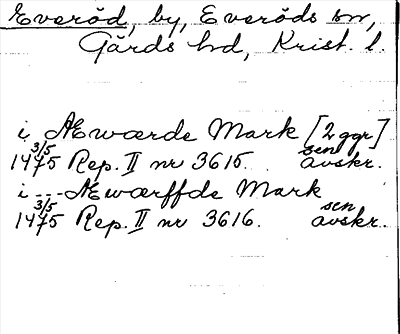 Everöd, by, Everöds sn,
Gärds hd, Krist. l.
i Æwærde Mark [2 ggr]
3/5 1475 Rep. II nr 3615. sen avskr.
i --- Æwærffde Mark
3/5 1475 Rep. II nr 3616. sen avskr.